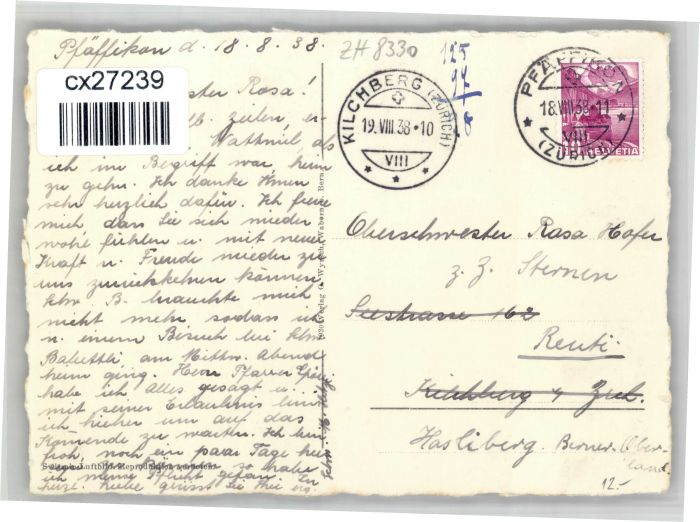 Pfäffikon d. 18.8.38.
ZH 8330
cx27239
ester Rosa!
zeilen, er-
Wattwil, als
ich im Begriff war heim
zu gehn. Ich danke Ihnen
sehr herzlich dafür. Ich freue
mich dass Sie sich wieder
wohl fühlen u. mit neuer
Kraft u. Freude wieder zu
uns zurückkehren können
Schw. B. brauchte mich
nicht mehr sodass ich
n. einem Besuch bei Schw.
Babettli am Mittw. Abend
heim ging. Herr Pfarrer
habe ich Alles gesagt u.
mit seiner Erlaubnis bin
ich hieher um auf das
Kommende zu warten. Ich bin
froh, noch ein paar Tage hier
habe
ich meine Pflicht getan. In
herzl. Liebe grüsst Sie Ihre erg.
KILCHBERG (ZÜRICH)
19.VIII.38-10
VIII
PFÄFFIKON
18.VIII.38-11
VIII
(ZÜRICH)
HELVETIA
Oberschwester Rosa Hofer
z. Z. Sternen
Seestrasse 162
Reuti
Kilchberg b/ Zch.
Hasliberg. Berner-Ober-
land
12.-